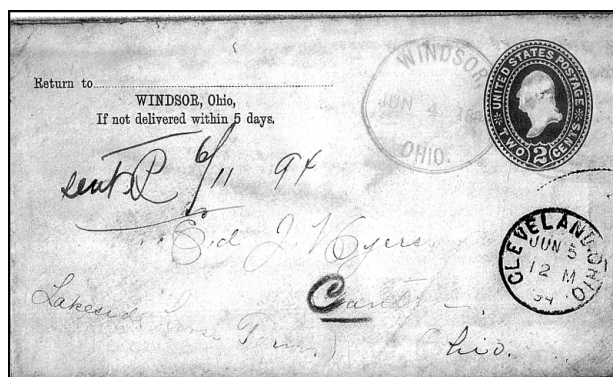 Return to
WINDSOR, Ohio,
If not delivered within 5 days.
WINDSOR
JUN 4
OHIO.
UNITED STATES POSTAGE
TWO 2 CENTS
sent 6/11 94
J. Myers
Canton
Lakeside Farm
Ohio.
CLEVELAND, OHIO
JUN 5
12 M
94